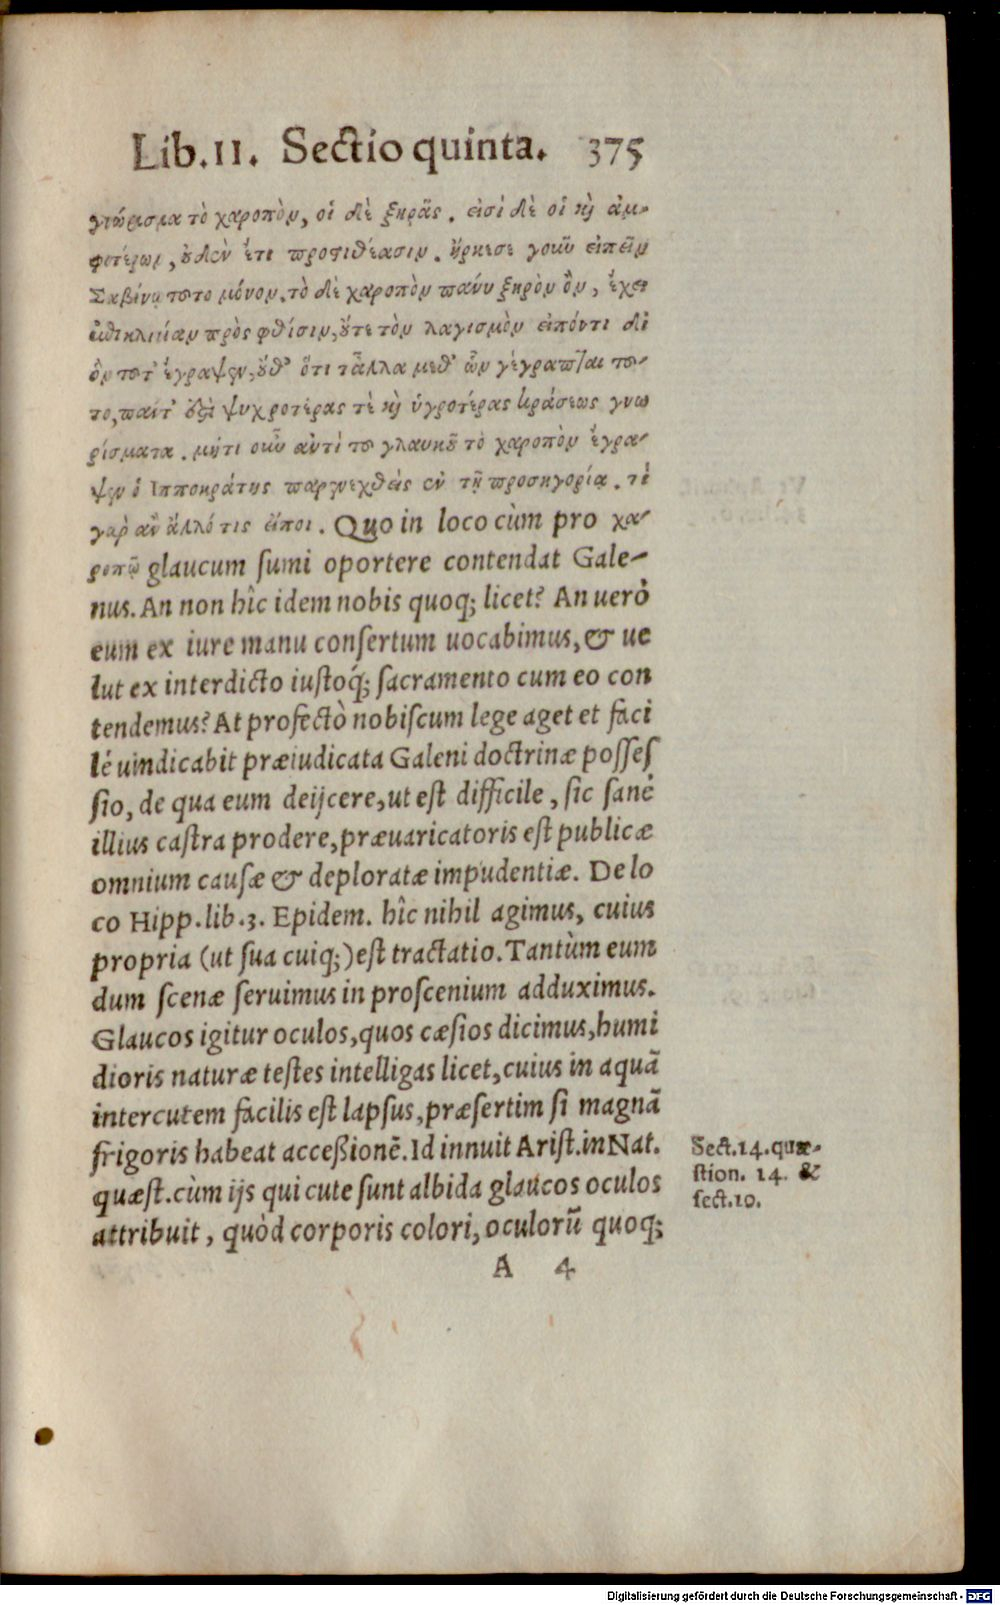 Lib. II. Sectio quinta. 375
γνώρισμα τὸ χαροπὸν, οἱ δὲ ξηρᾶς. εἰσὶ δὲ οἳ κὴ ἀμ-
φοτέρων, οὐδὲν ἔτι προστιθέασιν. ἤρκεσε γοῦν εἰπεῖν
Σαβίνῳ τοῦτο μόνον. τὸ δὲ χαροπὸν πάνυ ξηρὸν ὂν, ἔχει
ἐπιτηδείαν πρὸς φθίσιν, οὔτε τὸν λογισμὸν εἰπόντι δἰ
ὃν τοῦτ' ἔγραψεν, οὔθ' ὅτι τἆλλα μεθ' ὧν γέγραπται τοῦ-
το, πάντ' ἐστὶ ψυχροτέρας τὲ κὴ ὑγροτέρας κράσεως γνω
ρίσματα. μήτι οὖν ἀντὶ τοῦ γλαυκοῦ τὸ χαροπὸν ἔγρα-
ψεν ὁ Ἱπποκράτης παρενεχθεὶς ἐν τῇ προσηγορίᾳ. τί
γαρ αν ἄλλό τις εἴποι. Quo in loco cùm pro χα-
ροπῷ glaucum sumi oportere contendat Gale-
nus. An non hîc idem nobis quoq; licet? An uerò
eum ex iure manu consertum uocabimus, & ue
lut ex interdicto iustoq́; sacramento cum eo con
tendemus? At profectò nobiscum lege aget et faci
lè uindicabit præiudicata Galeni doctrinæ posses
sio, de qua eum deijcere, ut est difficile, sic sanè
illius castra prodere, præuaricatoris est publicæ
omnium causæ & deploratæ impudentiæ. De lo
co Hipp. lib. 3. Epidem. hîc nihil agimus, cuius
propria (ut sua cuiq;) est tractatio. Tantùm eum
dum scenæ seruimus in proscenium adduximus.
Glaucos igitur oculos, quos cæsios dicimus, humi
dioris naturæ testes intelligas licet, cuius in aquã
intercutem facilis est lapsus, præsertim si magnã
frigoris habeat accessionẽ. Id innuit Arist. in Nat.
quæst. cùm ijs qui cute sunt albida glaucos oculos
attribuit, quòd corporis colori, oculorũ quoq;
Sect. 14. quæ-
stion. 14. &
sect. 10.
A 4
Digitalisierung gefördert durch die Deutsche Forschungsgemeinschaft - DFG